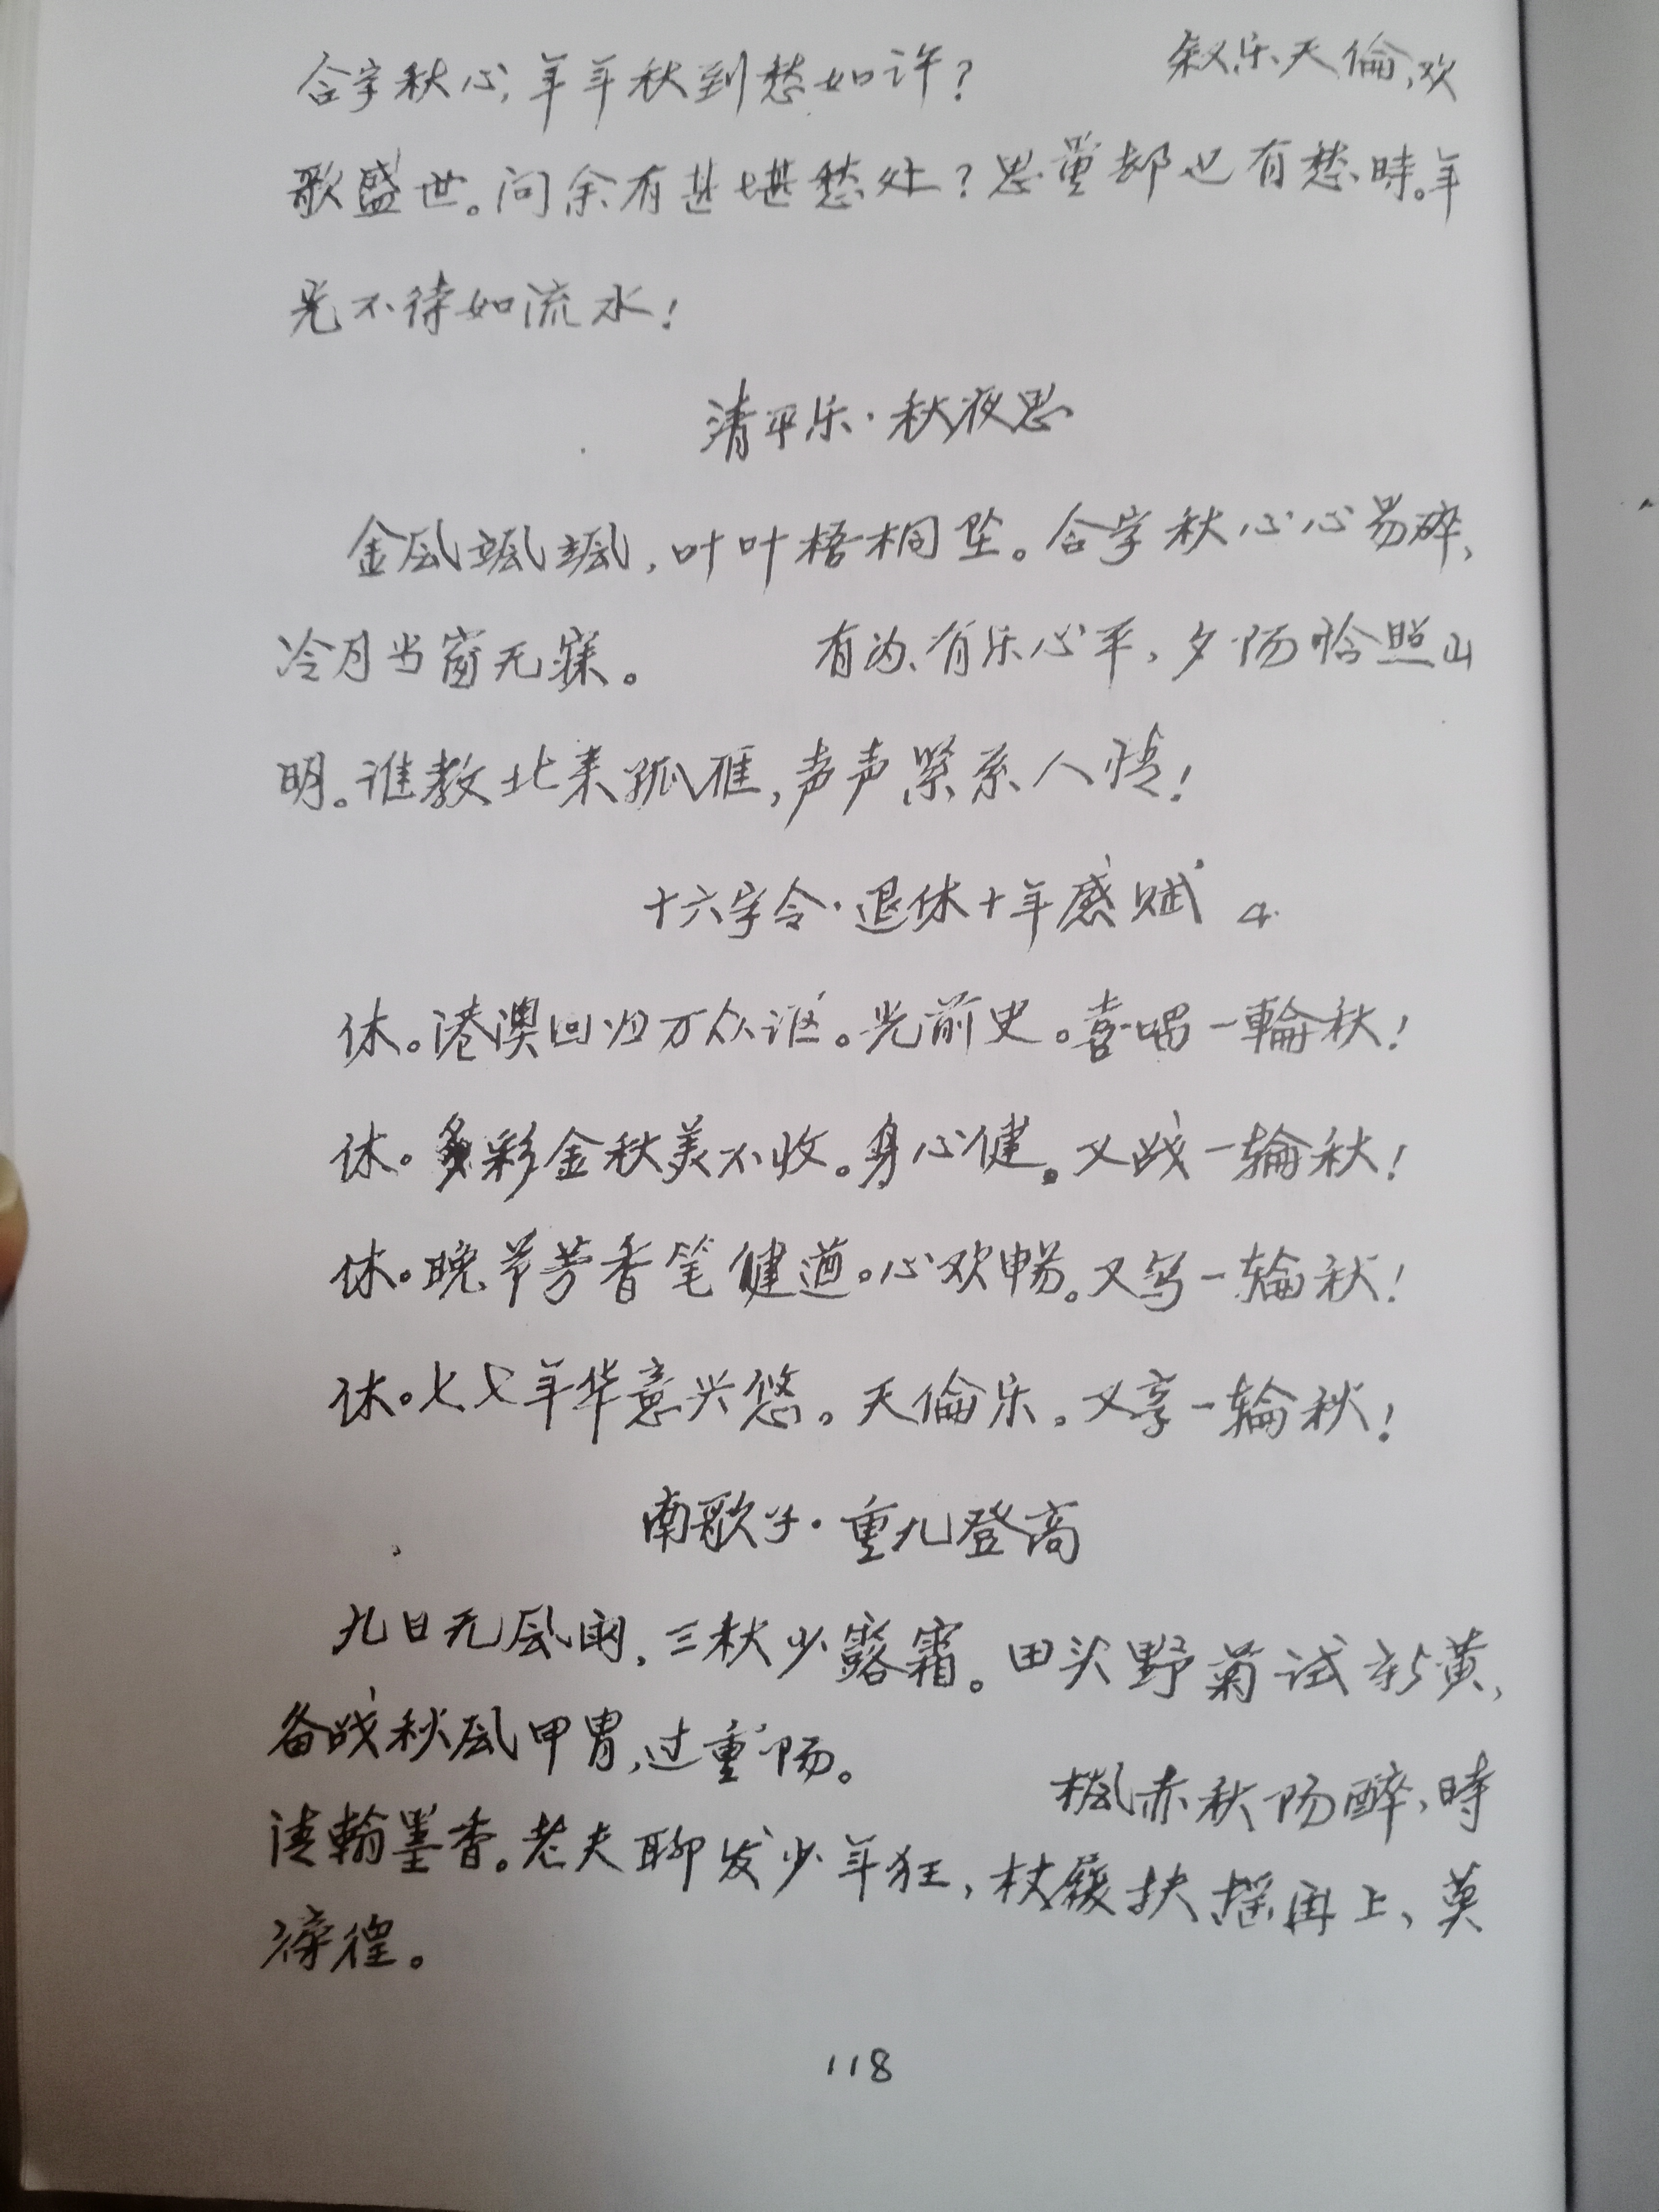 合字秋心,年年秋到愁如许?　　叙乐天倫,欢
歌盛世。问余有甚堪愁处?思量却也有愁時。年
光不待如流水!
清平乐·秋夜思
金風飒飒,叶叶梧桐坠。合字秋心心易碎,
冷月当窗无寐。　　有为、有乐心平,夕阳恰照山
明。谁教北来孤雁,声声紧系人情!
十六字令·退休十年感赋 4.
休。港澳回归万众讴。光前史。喜唱一輪秋!
休。多彩金秋美不收。身心健。又战一輪秋!
休。晚节芳香笔健遒。心欢畅。又写一輪秋!
休。七七年华意兴悠。天倫乐。又享一輪秋!
南歌子·重九登高
九日无風雨,三秋少露霜。田头野菊试新黄,
备战秋風甲胄,过重阳。
楓赤秋阳醉,時
清翰墨香。老夫聊发少年狂,杖履扶摇再上、莫
彷徨。
118